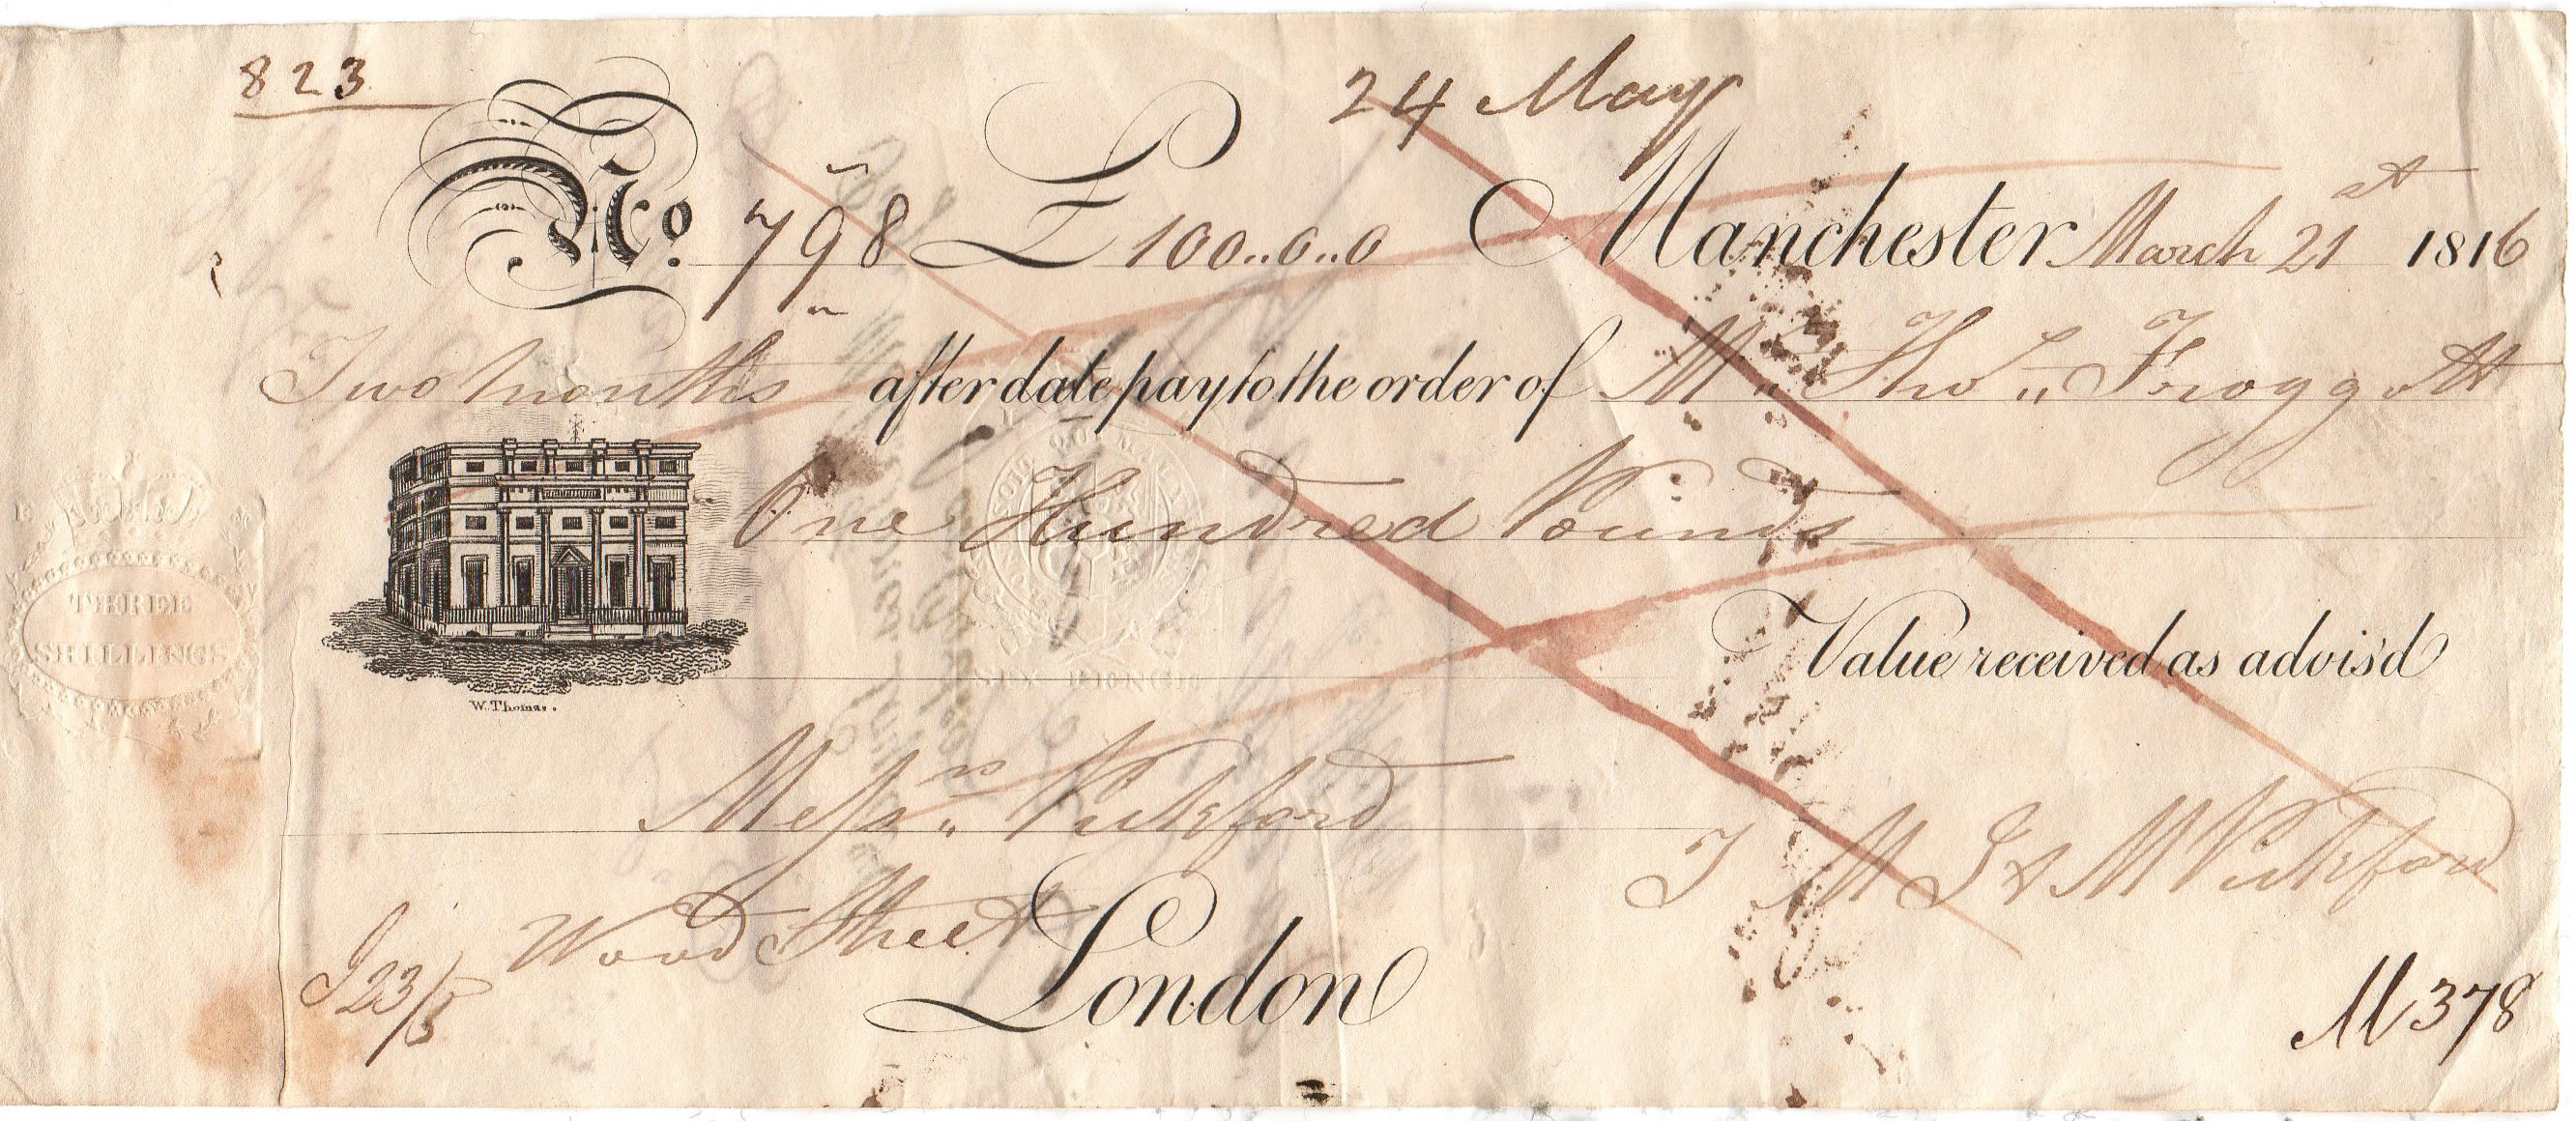 823
24 May
No. 798 £ 100..0..0 Manchester March 21st 1816
Two months after date pay to the order of Mr Thos Froggott
One Hundred Pounds
THREE
SHILLINGS
SIX PENCE
Value received as advis'd
W. Thomas.
Messrs Pickford
T M J & M Pickford
Wood Street London
23/5
M 378